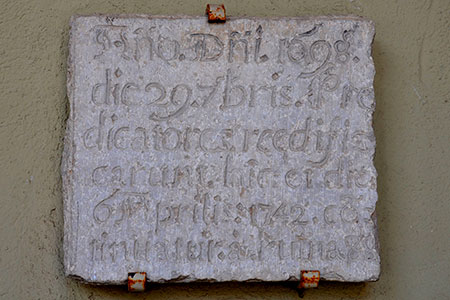 Año. Dñi. 1698.
die 29. 7bris. Pre
dicatores reedifis
carunt. hic. et die
6 Aprilis: 1742. cō
tinuatur. a Ruina